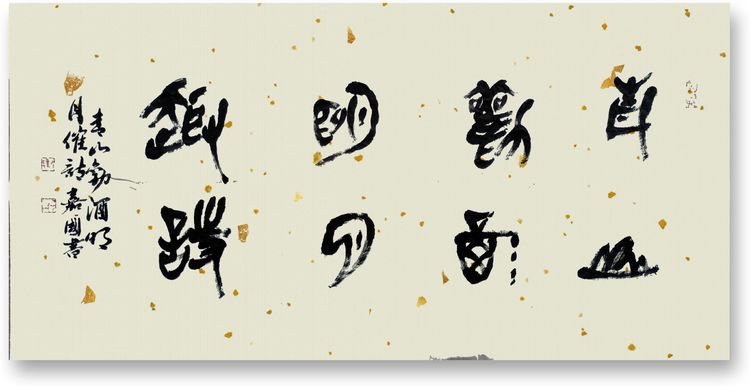 青山
勸酒
明月
催詩
青山勸酒明
月催詩 嘉國書